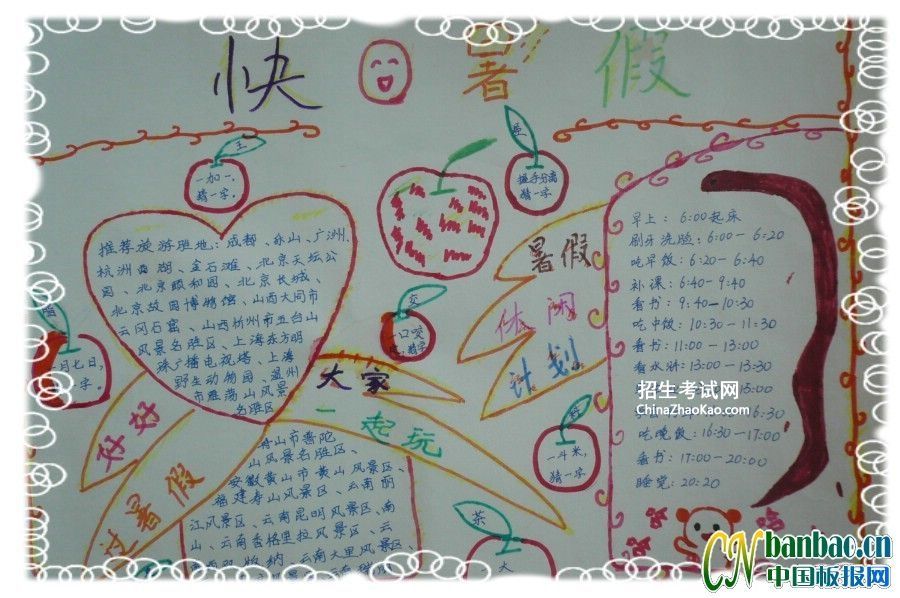 快 暑 假
王
一加一，
猜一字。
握手分离
猜一字
推荐旅游胜地：成都、乐山、广洲、
杭洲西湖、金石滩、北京天坛公
园、北京颐和园、北京长城、
北京故园博物馆、山西大同市
云冈石窟、山西忻州市五台山
风景名胜区、上海东方明
珠广播电视塔、上海
野生动物园、温州
市雁荡山风景
名胜区
月七日，
字。
交
大家
一起玩
好好
过暑假
舟山市普陀
山风景名胜区、
安徽黄山市黄山风景区、
福建寿山风景区、云南丽
江风景区、云南昆明风景区、南
山、云南香格里拉风景区、云
版纳、云南大里风景区、
暑假
休闲
计划
一斗米，
猜一字。
茶
大
早上：6:00起床
刷牙洗脸：6:00－6:20
吃早饭：6:20－6:40
补课：6:40－9:40
看书：9:40－10:30
吃中饭：10:30－11:30
看书：11:00－13:00
看水浒：13:00－13:30
15:00
6:30
吃晚饭：16:30－17:00
看书：17:00－20:00
睡觉：20:20
招生考试网
ChinaZhaoKao.com
CN banbao.cn
中国板报网